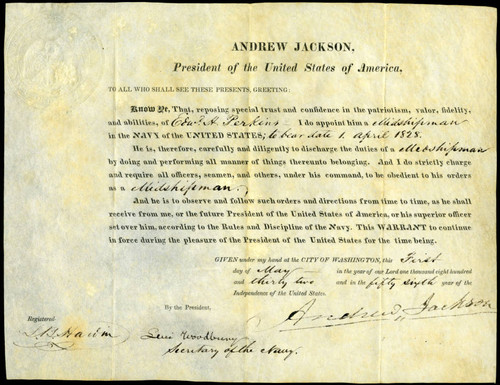 ANDREW JACKSON,
President of the United States of America,
TO ALL WHO SHALL SEE THESE PRESENTS, GREETING:
Know Ye, That, reposing special trust and confidence in the patriotism, valor, fidelity,
and abilities, of Edwd. A. Perkins I do appoint him a Midshipman
in the NAVY of the UNITED STATES, to bear date 1. April 1828.
He is, therefore, carefully and diligently to discharge the duties of a Midshipman
by doing and performing all manner of things thereunto belonging. And I do strictly charge
and require all officers, seamen, and others, under his command, to be obedient to his orders
as a Midshipman.
And he is to observe and follow such orders and directions from time to time, as he shall
receive from me, or the future President of the United States of America, or his superior officer
set over him, according to the Rules and Discipline of the Navy. This WARRANT to continue
in force during the pleasure of the President of the United States for the time being.
GIVEN under my hand at the CITY OF WASHINGTON, this First
day of May in the year of our Lord one thousand eight hundred
and thirty two and in the fifty sixth year of the
Independence of the United States.
Andrew Jackson
By the President,
Registered
Levi Woodbury
Secretary of the Navy.